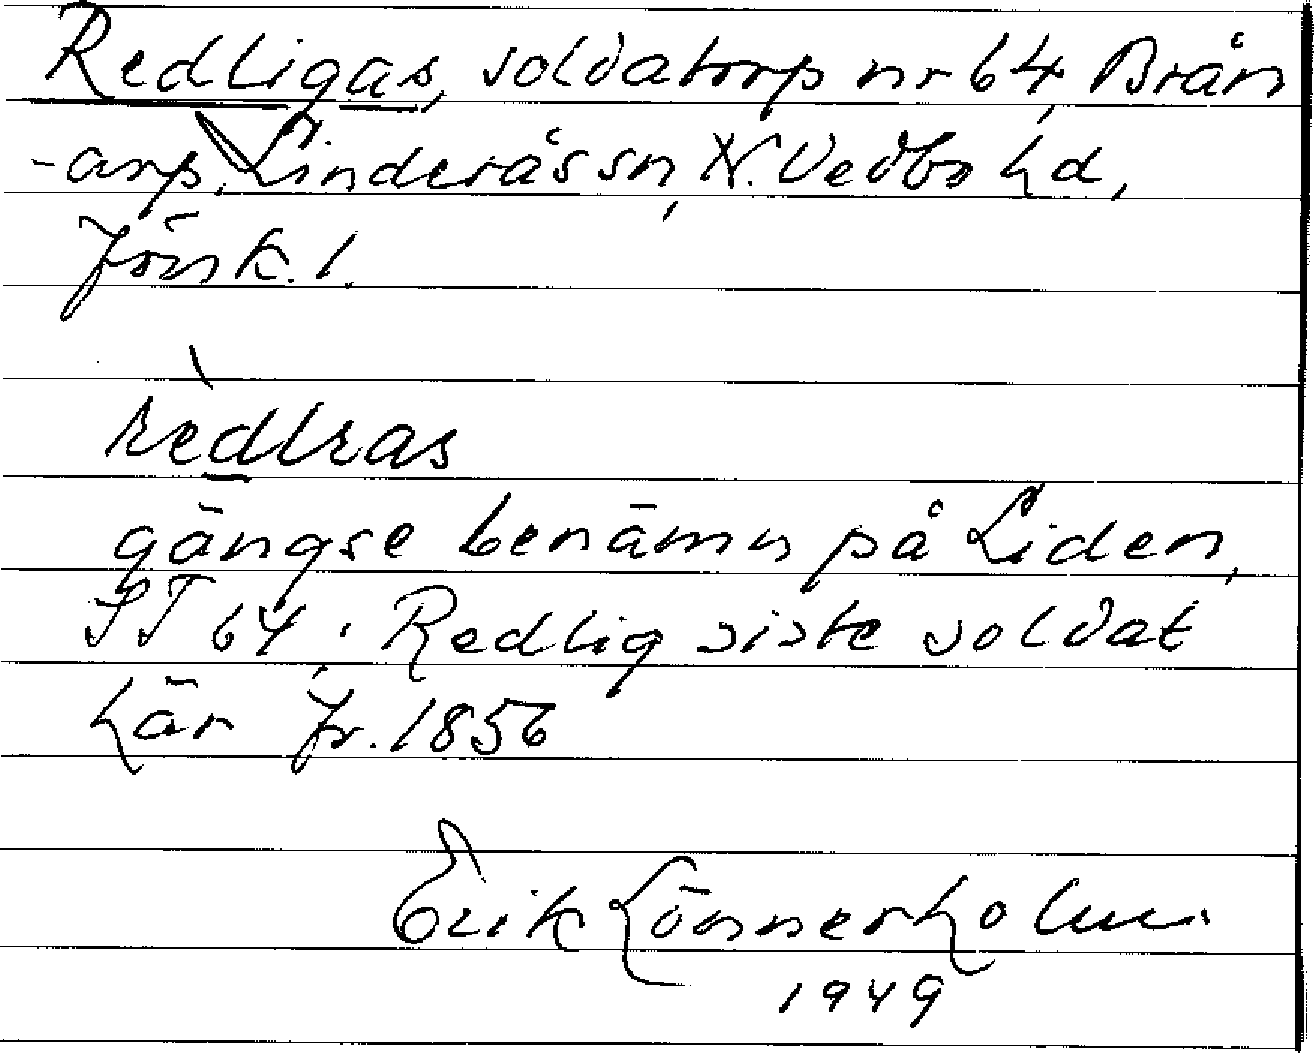 Redligas, soldatorp nr 64, Brån
-arp, Linderås sn, N. Vedbo hd,
Jönk. l.
redlras
gängse benämn på Liden,
ST 64; Redlig siste soldat
här fr. 1856
Erik Lönnerholm
1949